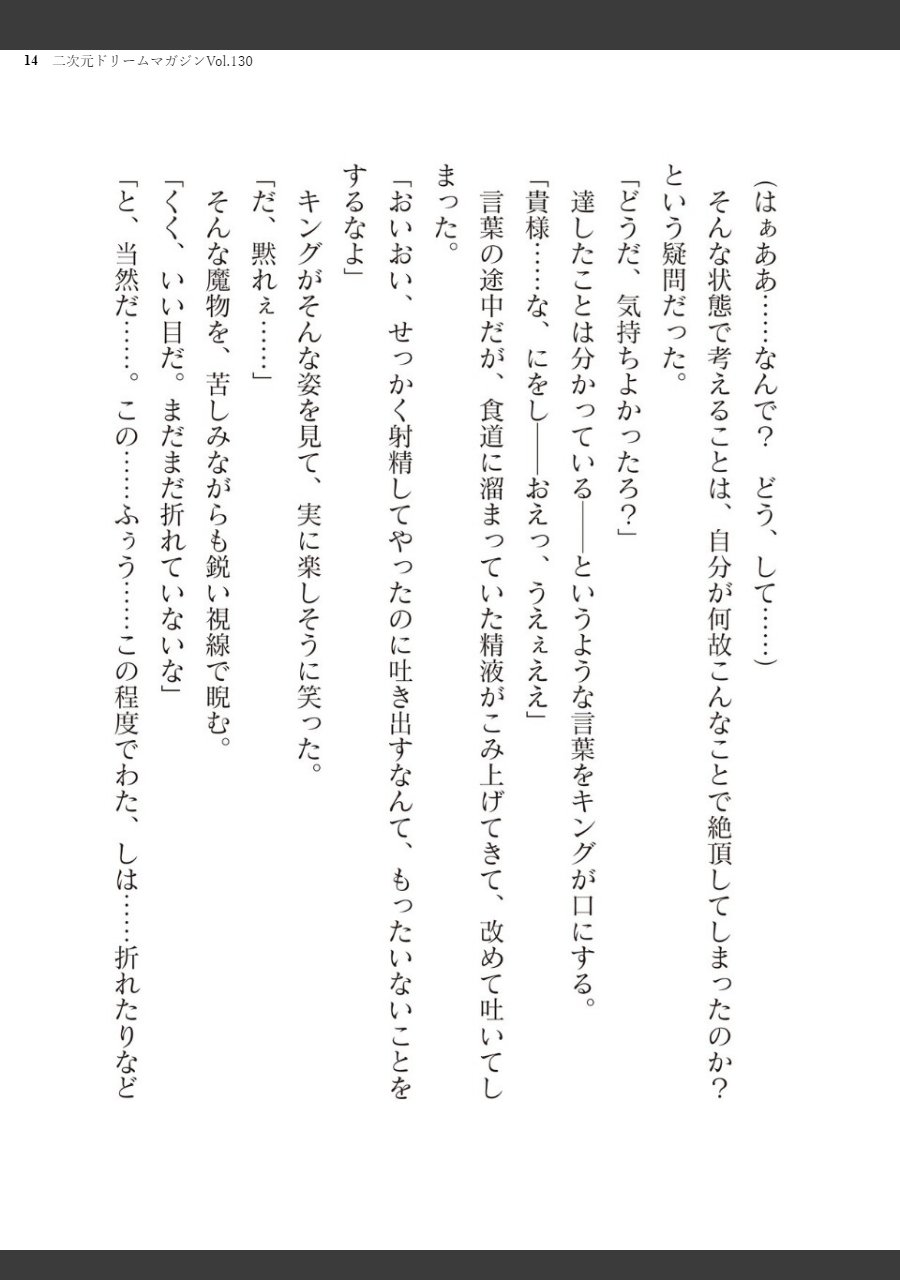 14 二次元ドリームマガジンVol.130
（はぁああ……なんで？　どう、して……）
　そんな状態で考えることは、自分が何故こんなことで絶頂してしまったのか？
という疑問だった。
「どうだ、気持ちよかったろ？」
　達したことは分かっている――というような言葉をキングが口にする。
「貴様……な、にをし――おえっ、うえぇええ」
　言葉の途中だが、食道に溜まっていた精液がこみ上げてきて、改めて吐いてし
まった。
「おいおい、せっかく射精してやったのに吐き出すなんて、もったいないことを
するなよ」
　キングがそんな姿を見て、実に楽しそうに笑った。
「だ、黙れぇ……」
　そんな魔物を、苦しみながらも鋭い視線で睨む。
「くく、いい目だ。まだまだ折れていないな」
「と、当然だ……。この……ふぅう……この程度でわた、しは……折れたりなど